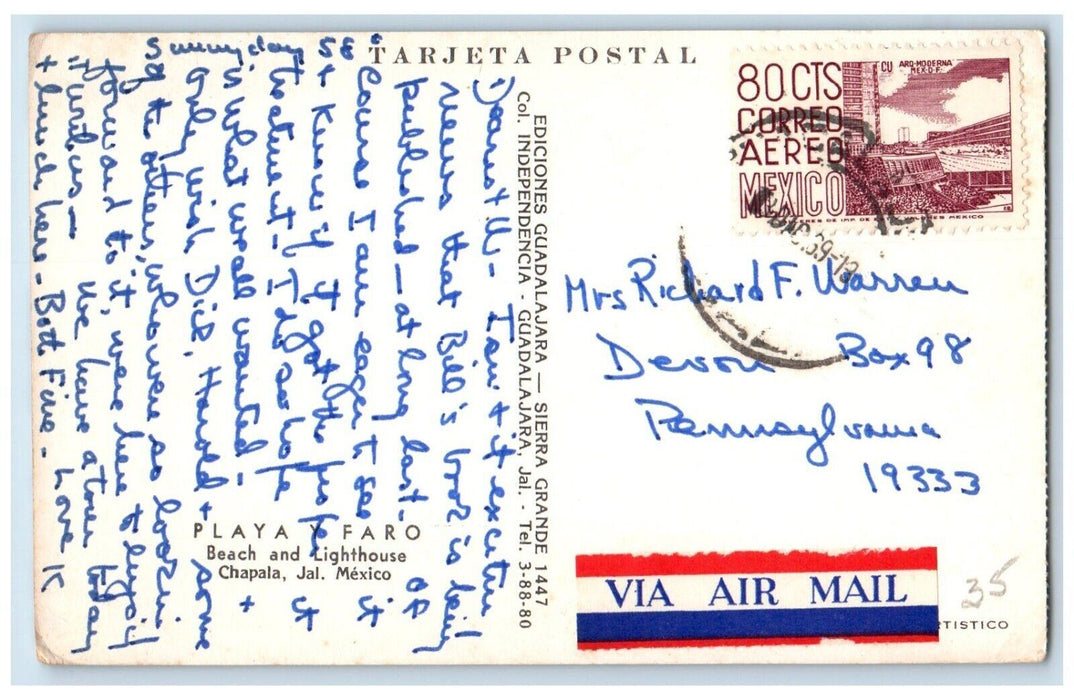 TARJETA POSTAL
Sunny day 58°
Dearest W- Isn't it excitin
news that Bill's book is being
published - at long last. Of
course I am eager to see it
& know if it got the proper
treatment - I do so hope it
is what we all wanted - +
only wish Dick, Harold + some
of the others, who were so looking
forward to it, were here to enjoy
it with us - We have a tour today
+ lunch here - Both Fine - Love K
EDICIONES GUADALAJARA — SIERRA GRANDE 1447
Col. INDEPENDENCIA - GUADALAJARA, Jal. - Tel. 3-88-80
PLAYA Y FARO
Beach and Lighthouse
Chapala, Jal. México
80 CTS
CORREO
AEREO
MEXICO
CU ARQ-MODERNA
MEX-D-F-
Mrs Richard F. Warren
Devon Box 98
Pennsylvania
19333
VIA AIR MAIL
35
RTISTICO